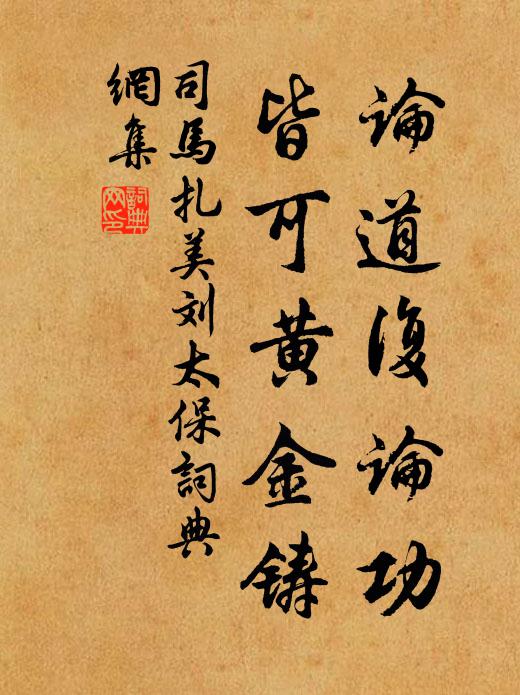 論道復論功
皆可黄金鑄
司馬扎美刘太保詞典
網集
詞典網印